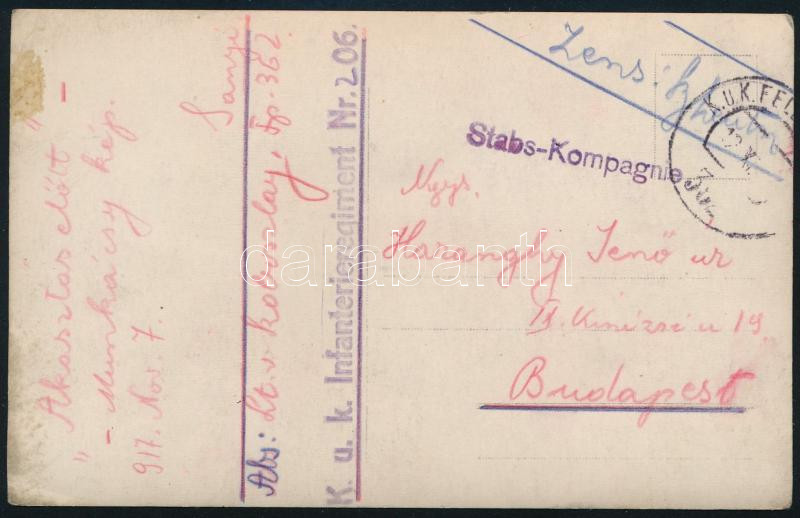 "Akasztás előtt" –
– Munkácsy kép.
917. Nov. 7.
Sanyi
Abs: Lt. v. Fp. 362
K. u. k. Infanterieregiment Nr. 206.
Zens:
Stabs-Kompagnie
K.u.K. FEL
Ngys.
Haranghy Jenő ur
Kinizsi u 19
Budapest
darabanth